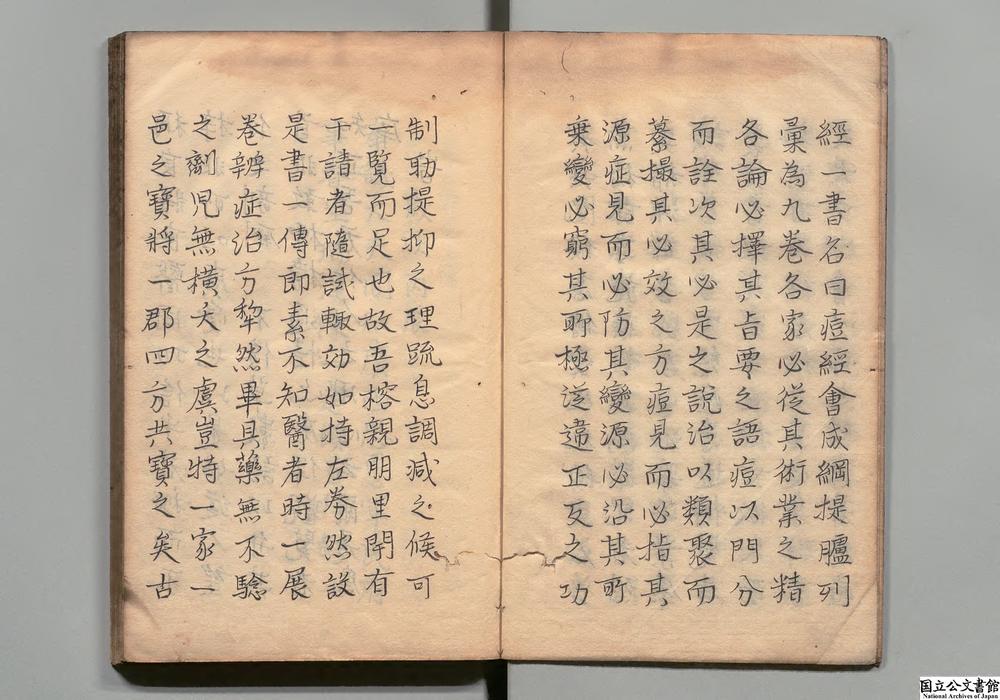 經一書名曰痘經會成綱提臚列
彙為九卷各家必從其術業之精
各論必擇其旨要之語痘以門分
而詮次其必是之說治以類聚而
纂撮其必效之方痘見而必指其
源症見而必防其變源必沿其所
乗變必窮其所極從違正反之功
制助提抑之理䟽息調減之候可
一覽而足也故吾榕親朋里閈有
干請者隨試輙効如持左券然設
是書一傳即素不知醫者時一展
卷辨症治方犂然畢具藥無不驗
之劑児無橫夭之虞豈特一家一
邑之寶將一郡四方共寶之矣古
国立公文書館
National Archives of Japan